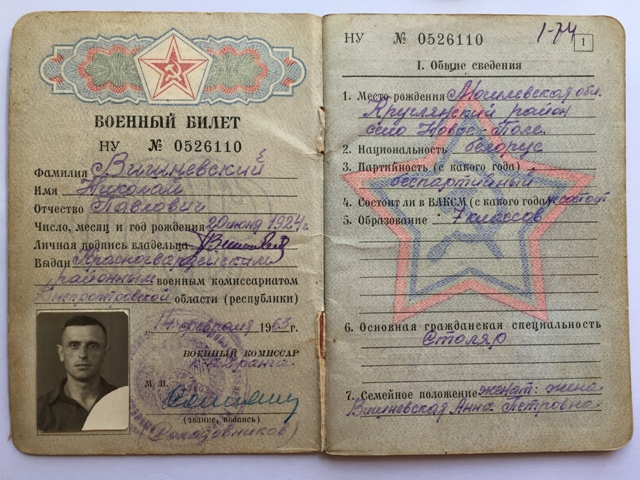 ВОЕННЫЙ БИЛЕТ
НУ № 0526110
Фамилия Вишневский
Имя Николай
Отчество Павлович
Число, месяц и год рождения 20 июня 1924 г.
Личная подпись владельца
Выдан Красногвардейским
районным военным комиссариатом
Днепропетровской области (республики)
14 февраля 1963 г.
ВОЕННЫЙ КОМИССАР
М. П.
(звание, подпись)
НУ № 0526110
1-74
1
I. Общие сведения
1. Место рождения Могилевская обл.
Круглянский район
село Новое-Поле
2. Национальность белорус
3. Партийность (с какого года)
беспартийный
4. Состоит ли в ВЛКСМ (с какого года)
5. Образование 7 классов
6. Основная гражданская специальность
Столяр
7. Семейное положение женат: жена
Вишневская Анна Петровна